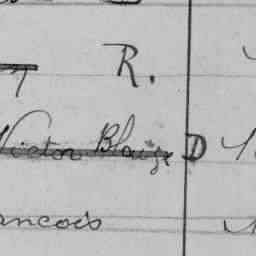 R.
Victor Blaize D
ancois